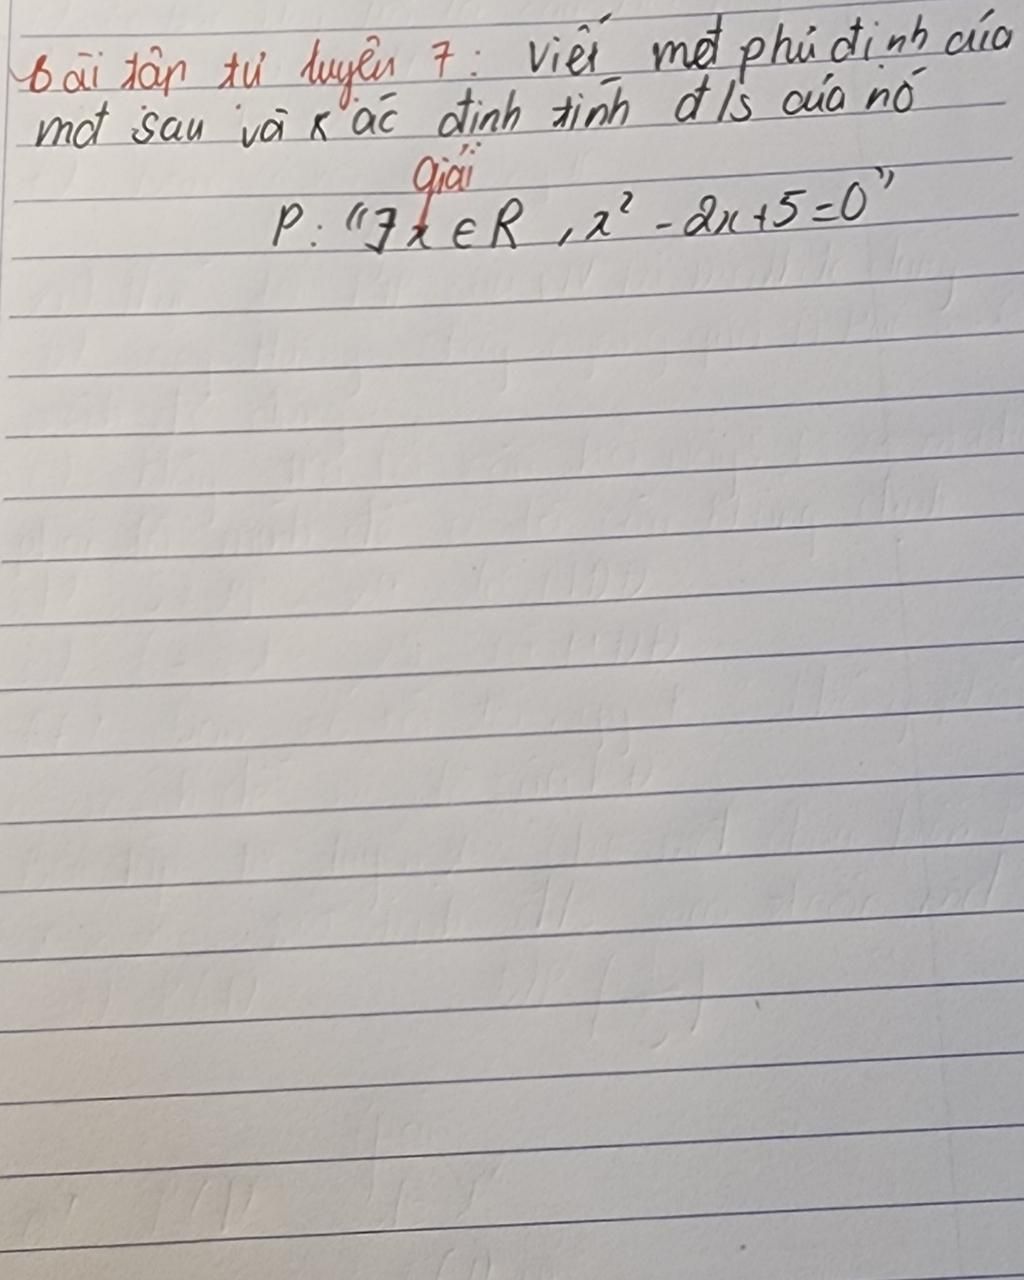 bài tập tự luyện 7: viết mđ phủ định của
mđ sau và xác định tính đ/s của nó
giải
P: "∃x ∈ R, x² - 2x + 5 = 0"